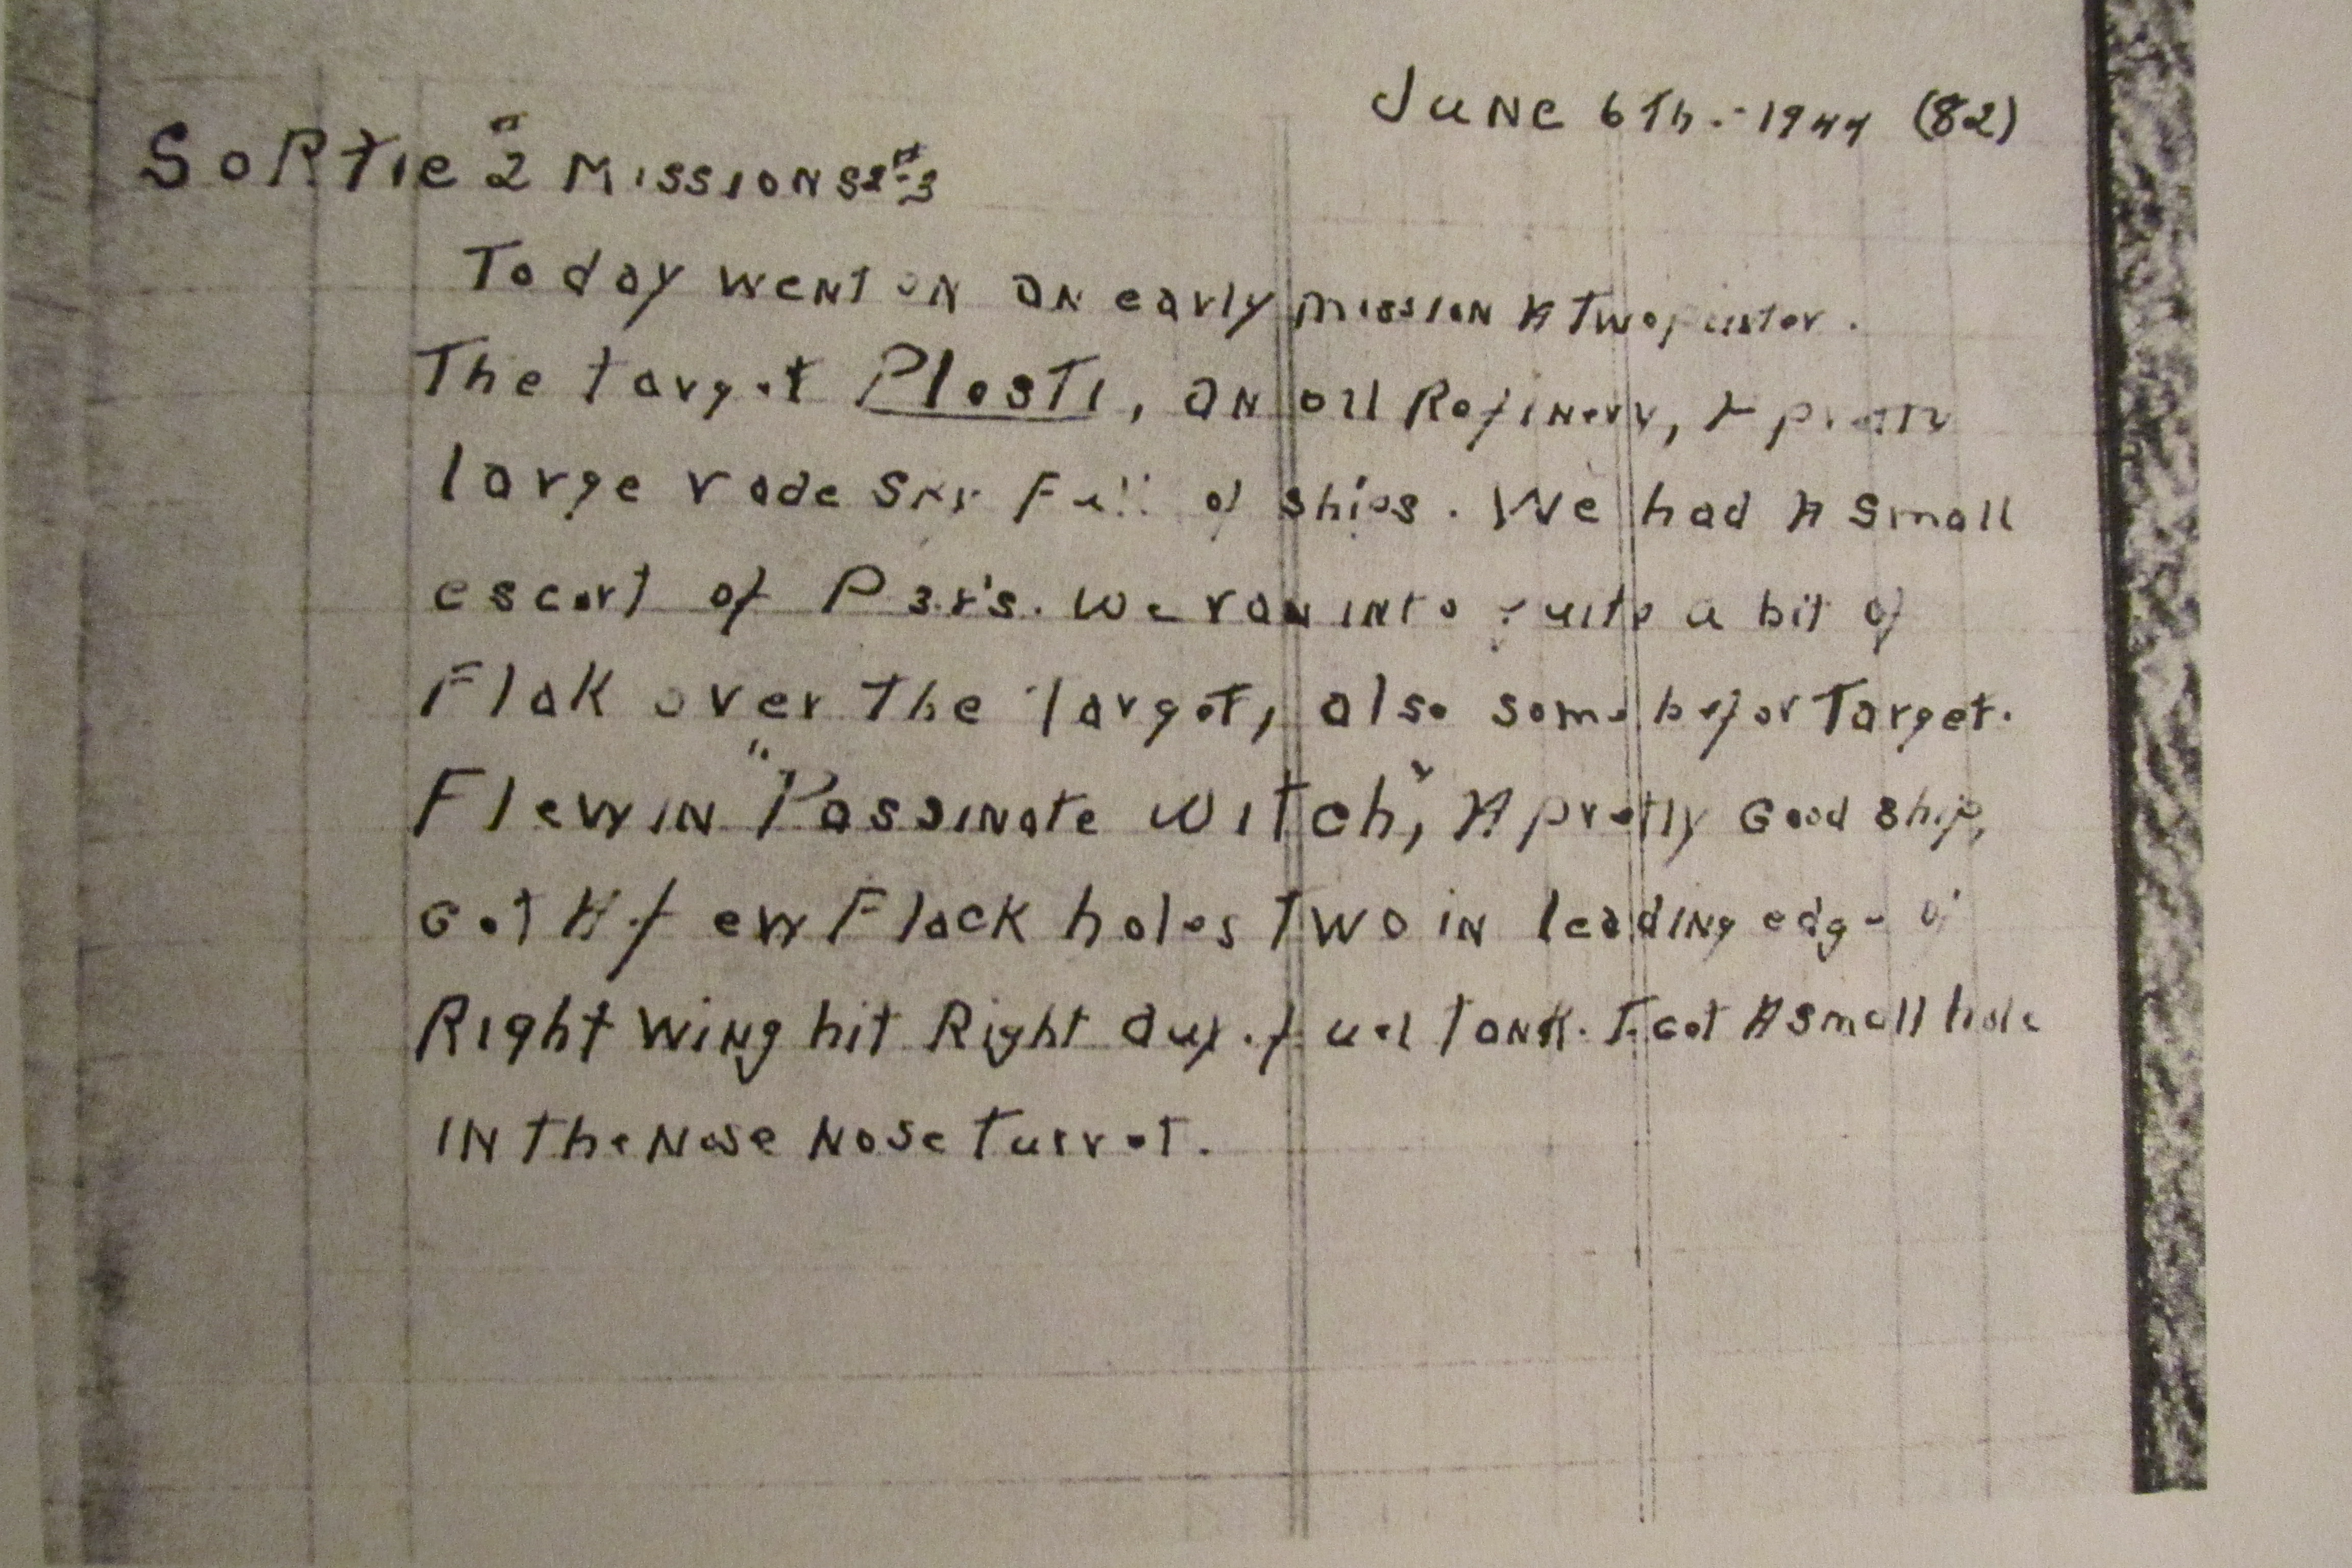 June 6Th.-1944 (82)
Sortie #2 Missions #2-3
Today went on an early mission A Two
The target Plosti, an oil Refinery, A pretty
large rade Sky Full of ships. We had A small
escort of P38's. We ran into quite a bit of
Flak over The Target, also some befor Target.
Flew in "Passinate Witch", A pretty Good ship,
Got A few Flack holes Two in leading edge of
Right wing hit Right aux. fuel tank. I Got A small hole
IN the Nose Nose Turret.